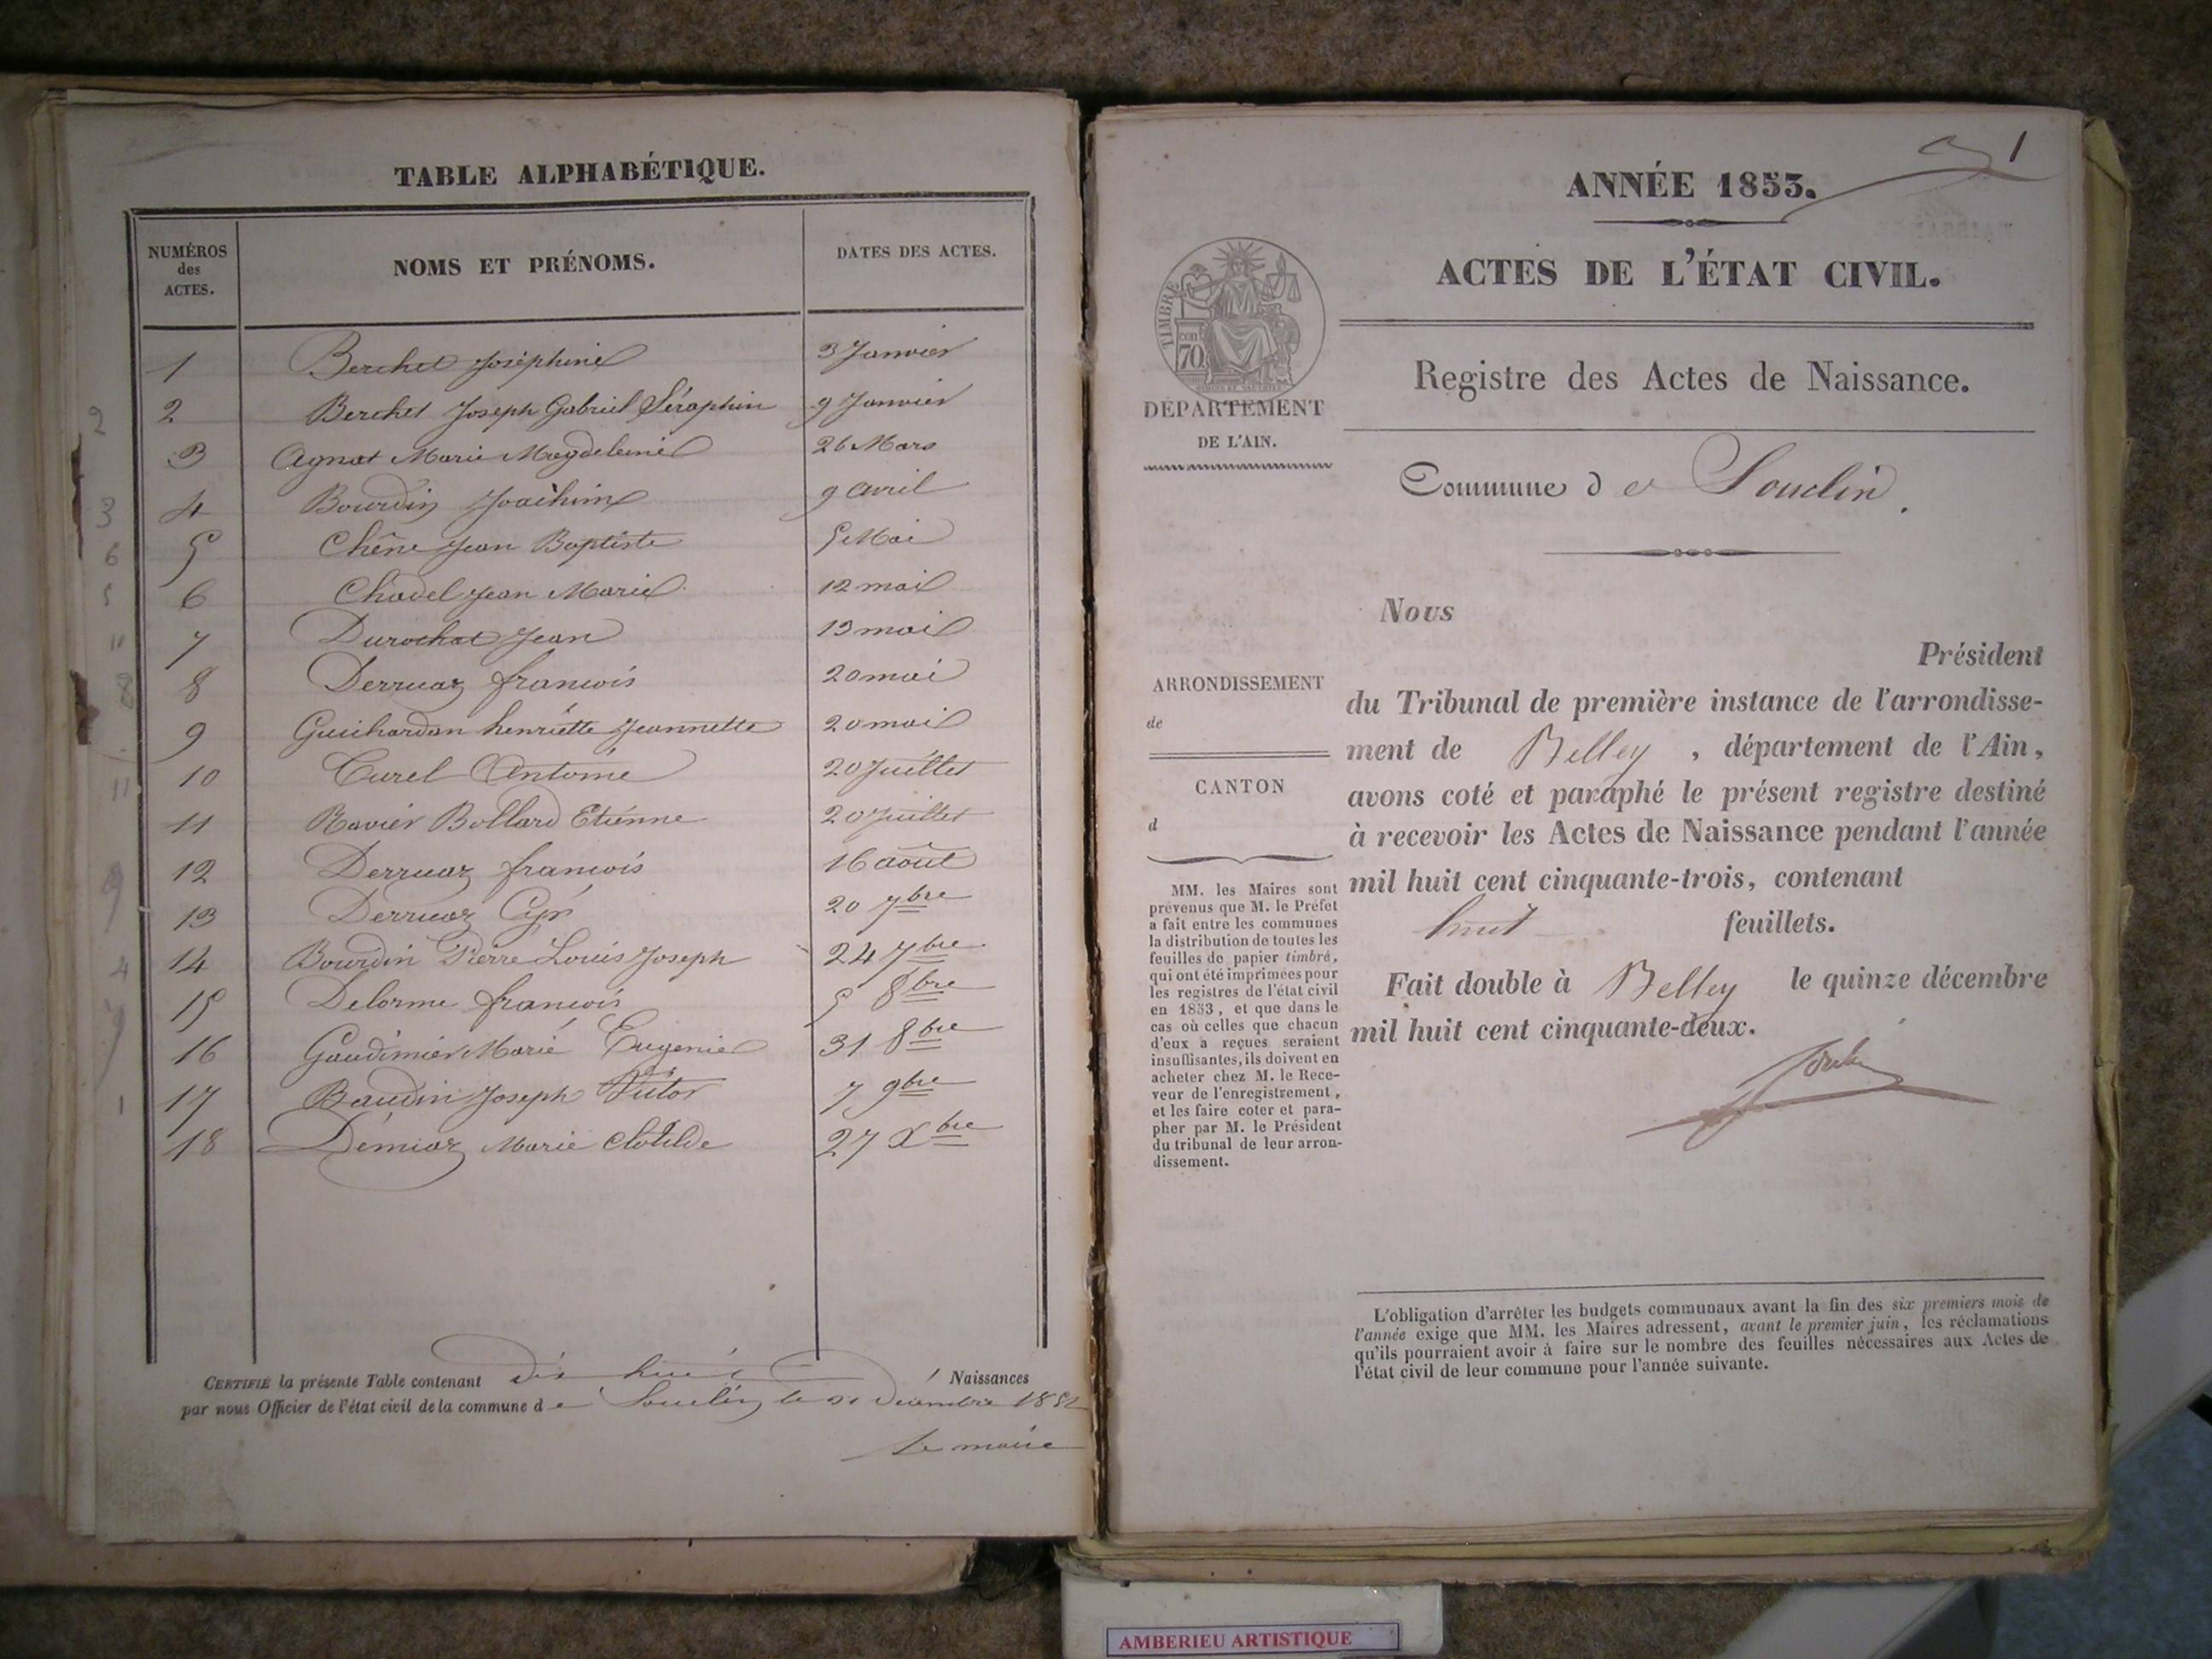 TABLE ALPHABÉTIQUE.
NUMÉROS des ACTES. NOMS ET PRÉNOMS. DATES DES ACTES.
1 Berchet Joséphine 3 Janvier
2 Berchet Joseph Gabriel Séraphin 9 Janvier
3 Agnat Marie Magdeleine 26 Mars
4 Bourdin Joachim 9 avril
5 Chêne Jean Baptiste 5 Mai
6 Chadel Jean Marie 12 mai
7 Durochat Jean 13 mai
8 Derruaz francois 20 mai
9 Guichardan henriette Jeannette 20 mai
10 Curel Antoine 20 Juillet
11 Ravier Bollard Etienne 20 Juillet
12 Derruaz francois 16 août
13 Derruaz Cyr 20 7bre
14 Bourdin Pierre Louis Joseph 24 7bre
15 Delorme francois 5 8bre
16 Gaudimier Marie Eugenie 31 8bre
17 Baudin Joseph Victor 7 9bre
18 Démiaz Marie Clotilde 27 Xbre
CERTIFIÉ la présente Table contenant dix huit Naissances
par nous Officier de l'état civil de la commune de Souclin le 31 Décembre 1852
Le maire
1
ANNÉE 1853.
ACTES DE L'ÉTAT CIVIL.
TIMBRE
cen
70
DÉPARTEMENT
DE L'AIN.
Registre des Actes de Naissance.
Commune de Souclin.
ARRONDISSEMENT
de
CANTON
d
MM. les Maires sont
prévenus que M. le Préfet
a fait entre les communes
la distribution de toutes les
feuilles de papier timbré,
qui ont été imprimées pour
les registres de l'état civil
en 1853, et que dans le
cas où celles que chacun
d'eux a reçues seraient
insuffisantes, ils doivent en
acheter chez M. le Rece-
veur de l'enregistrement,
et les faire coter et para-
pher par M. le Président
du tribunal de leur arron-
dissement.
Nous
Président
du Tribunal de première instance de l'arrondisse-
ment de Belley, département de l'Ain,
avons coté et paraphé le présent registre destiné
à recevoir les Actes de Naissance pendant l'année
mil huit cent cinquante-trois, contenant
huit feuillets.
Fait double à Belley le quinze décembre
mil huit cent cinquante-deux.
L'obligation d'arrêter les budgets communaux avant la fin des six premiers mois de
l'année exige que MM. les Maires adressent, avant le premier juin, les réclamations
qu'ils pourraient avoir à faire sur le nombre des feuilles nécessaires aux Actes de
l'état civil de leur commune pour l'année suivante.
AMBERIEU ARTISTIQUE